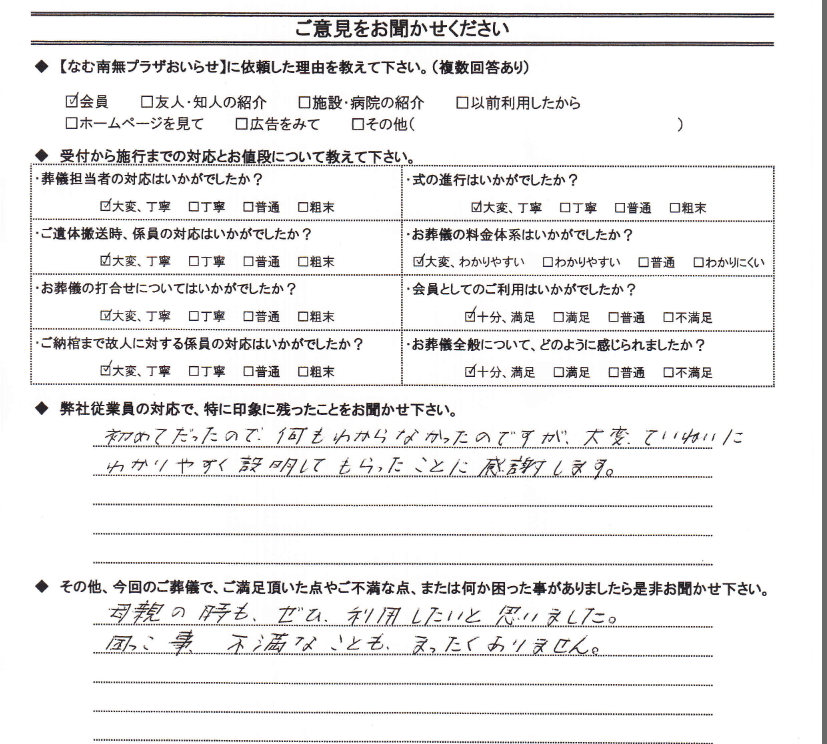 ご意見をお聞かせください
◆ 【なむ南無プラザおいらせ】に依頼した理由を教えて下さい。(複数回答あり)
☑会員 □友人・知人の紹介 □施設・病院の紹介 □以前利用したから
□ホームページを見て □広告をみて □その他( )
◆ 受付から施行までの対応とお値段について教えて下さい。
・葬儀担当者の対応はいかがでしたか?
☑大変、丁寧 □丁寧 □普通 □粗末
・式の進行はいかがでしたか?
☑大変、丁寧 □丁寧 □普通 □粗末
・ご遺体搬送時、係員の対応はいかがでしたか?
☑大変、丁寧 □丁寧 □普通 □粗末
・お葬儀の料金体系はいかがでしたか?
☑大変、わかりやすい □わかりやすい □普通 □わかりにくい
・お葬儀の打合せについてはいかがでしたか?
☑大変、丁寧 □丁寧 □普通 □粗末
・会員としてのご利用はいかがでしたか?
☑十分、満足 □満足 □普通 □不満足
・ご納棺まで故人に対する係員の対応はいかがでしたか?
☑大変、丁寧 □丁寧 □普通 □粗末
・お葬儀全般について、どのように感じられましたか?
☑十分、満足 □満足 □普通 □不満足
◆ 弊社従業員の対応で、特に印象に残ったことをお聞かせ下さい。
初めてだったので、何もわからなかったのですが、大変、ていねいに
わかりやすく説明してもらったことに感謝します。
◆ その他、今回のご葬儀で、ご満足頂いた点やご不満な点、または何か困った事がありましたら是非お聞かせ下さい。
母親の時も、ぜひ、利用したいと思いました。
困っこ事 不満なことも、まったくありません。